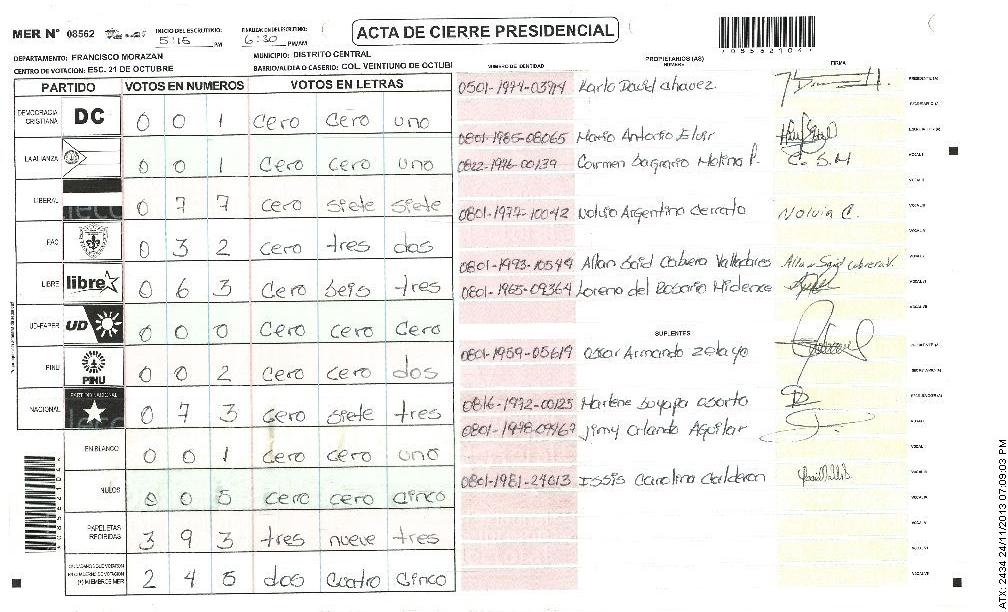 MER N° 08562 INICIO DEL ESCRUTINIO: 5:15 PM FINALIZACION DEL ESCRUTINIO: 6:30 PM/AM ACTA DE CIERRE PRESIDENCIAL
DEPARTAMENTO: FRANCISCO MORAZAN MUNICIPIO: DISTRITO CENTRAL
CENTRO DE VOTACION: ESC. 21 DE OCTUBRE BARRIO/ALDEA O CASERIO: COL VEINTIUNO DE OCTUBI
NUMERO DE IDENTIDAD PROPIETARIOS (AS) NOMBRE FIRMA
PARTIDO VOTOS EN NUMEROS VOTOS EN LETRAS
DEMOCRACIA CRISTIANA DC 0 0 1 cero cero uno
LA ALIANZA 0 0 1 cero cero uno
LIBERAL 0 7 7 cero siete siete
PAC 0 3 2 cero tres dos
LIBRE libre 0 6 3 cero seis tres
UD-FAPER UD 0 0 0 cero cero cero
PINU PINU 0 0 2 cero cero dos
NACIONAL PARTIDO NACIONAL 0 7 3 cero siete tres
EN BLANCO 0 0 1 cero cero uno
NULOS 0 0 5 cero cero cinco
PAPELETAS RECIBIDAS 3 9 3 tres nueve tres
2 4 5 dos cuatro cinco
(+) MIEMBROS MER
0501-1974-03914 Karlo David chavez. PRESIDENTE (A)
SECRETARIO (A)
0801-1985-08065 Mario Antonio Elvir
0822-1976-00139 Carmen Sagrario Molina P. C. S. M VOCAL I
VOCAL II
0801-1977-10042 Nolvia Argentina cerrato Nolvia C. VOCAL III
VOCAL IV
0801-1993-10549 Allan Said Cabrera Valladares Allan Said Cabrera V. VOCAL V
0801-1965-09364 Lorena del Rosario Midence VOCAL VI
VOCAL VII
SUPLENTES
0801-1959-05619 Oscar Armando Zelaya
0816-1972-00125 Marlene Suyapa
0801-1948-09467 Jimy Orlando Aguilar VOCAL I
0801-1981-24013 Issis Carolina Calderon
ATX: 2434 24/11/2013 07:09:03 PM